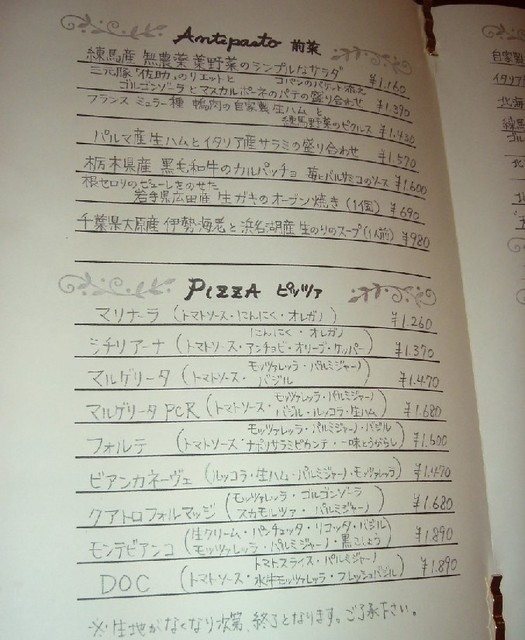 Antipasto 前菜
練馬産 無農薬 葉野菜のシンプルなサラダ ¥1.160
三元豚"佐助"のリエットと
ゴルゴンゾーラとマスカルポーネのパテの盛り合わせ ¥1.390
フランス ミュラー種 鴨肉の自家製生ハムと
練馬野菜のピクルス ¥1.430
パルマ産生ハムとイタリア産サラミの盛り合わせ ¥1.570
栃木県産 黒毛和牛のカルパッチョ 苺とバルサミコのソース ¥1.600
根セロリのピューレをのせた
岩手県広田産 生ガキのオーブン焼き(1個) ¥690
千葉県大原産 伊勢海老と浜名湖産 生のりのスープ(1人前) ¥980
PIZZA ピッツァ
マリナーラ (トマトソース・にんにく・オレガノ) ¥1.260
にんにく・オレガノ
シチリアーナ (トマトソース・アンチョビ・オリーブ・ケッパー) ¥1.370
モッツァレッラ・パルミジャーノ
マルゲリータ (トマトソース・バジル) ¥1.470
モッツァレッラ・パルミジャーノ
マルゲリータ PCR (トマトソース・バジル・ルッコラ・生ハム) ¥1.680
モッツァレッラ・パルミジャーノ・バジル
フォルテ (トマトソース・ナポリサラミピカンテ・一味とうがらし) ¥1.600
ビアンカネーヴェ (ルッコラ・生ハム・パルミジャーノ・モッツァレラ) ¥1.470
モッツァレッラ・ゴルゴンゾーラ
クアトロフォルマッジ (スカモルツァ・パルミジャーノ) ¥1.680
生クリーム・パンチェッタ・リコッタ・バジル
モンテビアンコ (モッツァレッラ・パルミジャーノ・黒こしょう) ¥1.890
トマトスライス・パルミジャーノ
DOC (トマトソース・水牛モッツァレッラ・フレッシュバジル) ¥1.890
※生地がなくなり次第、終了となります。ご了承下さい。
自家製
イタリア
北海
練馬
ゴル